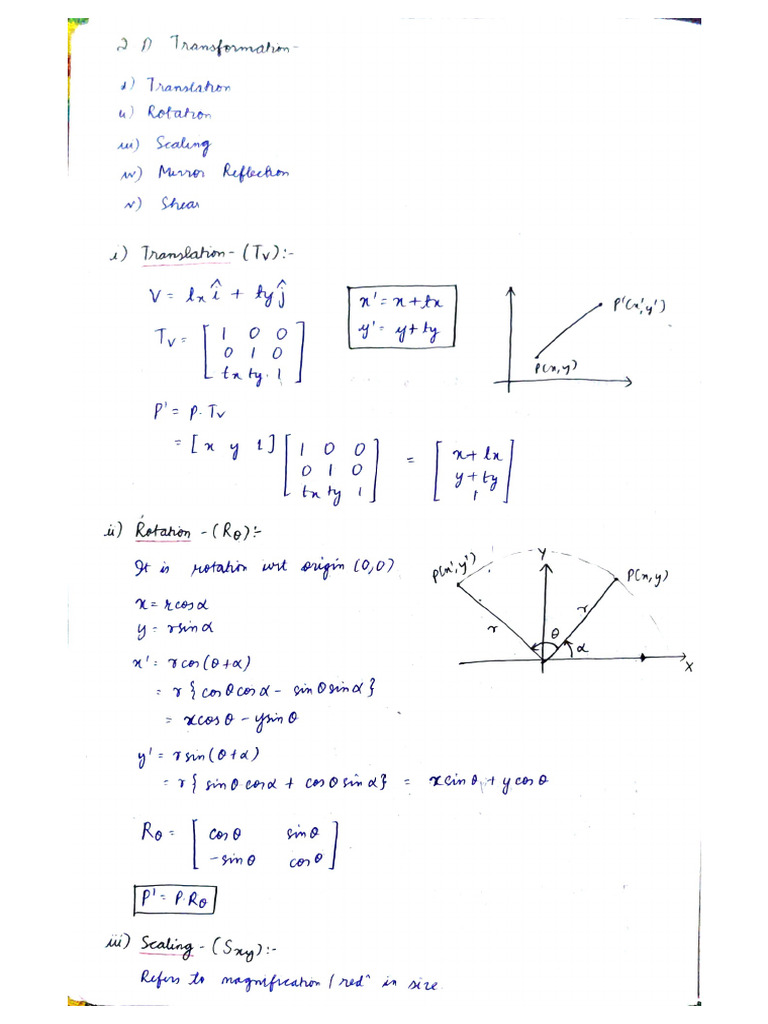 2 D Transformation-
i) Translation
ii) Rotation
iii) Scaling
iv) Mirror Reflection
v) Shear
i) Translation - (Tv):-
V = tx î + ty ĵ
x' = x + tx
y' = y + ty
P'(x', y')
P(x, y)
Tv = [ 1 0 0
0 1 0
tx ty 1 ]
P' = P. Tv
= [ x y 1 ] [ 1 0 0
0 1 0
tx ty 1 ] = [ x + tx
y + ty
1 ]
ii) Rotation - (Rθ):-
It is rotation wrt origin (0,0)
P(x', y')
Y
P(x, y)
r
θ
r
α
X
x = r cos α
y = r sin α
x' = r cos (θ + α)
= r { cos θ cos α - sin θ sin α }
= x cos θ - y sin θ
y' = r sin (θ + α)
= r { sin θ cos α + cos θ sin α } = x sin θ + y cos θ
Rθ = [ cos θ sin θ
- sin θ cos θ ]
P' = P. Rθ
iii) Scaling - (Sxy):-
Refers to magnification / redⁿ in size.